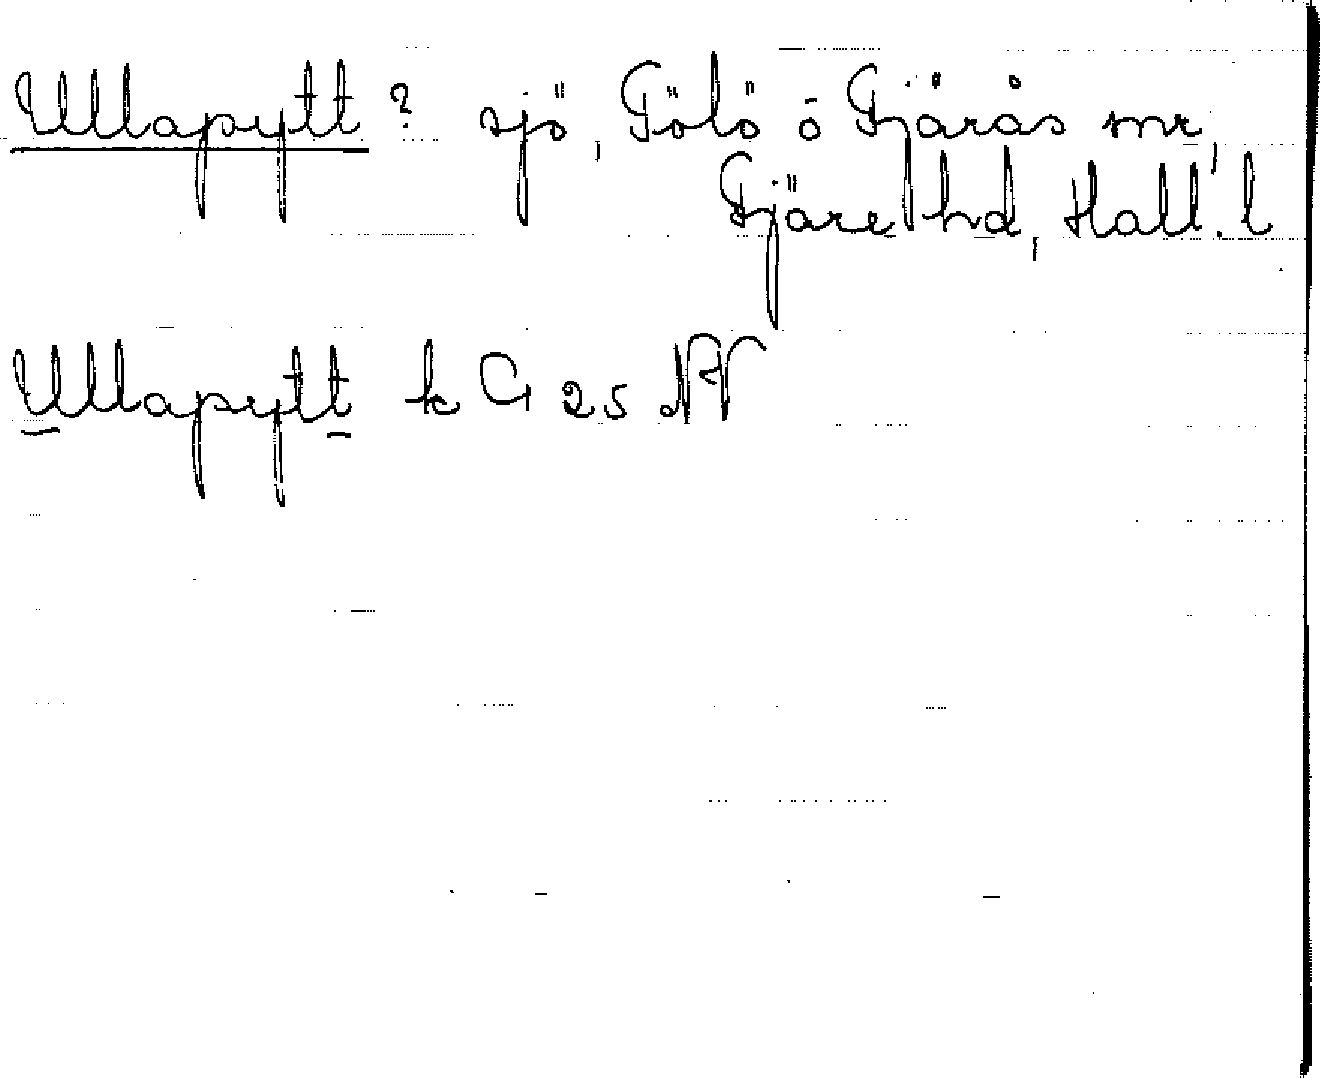 Ullapytt? sjö, Fölö o Fjärås snr,
Fjäre hd, Hall. l
Ullapytt k G 25 NV